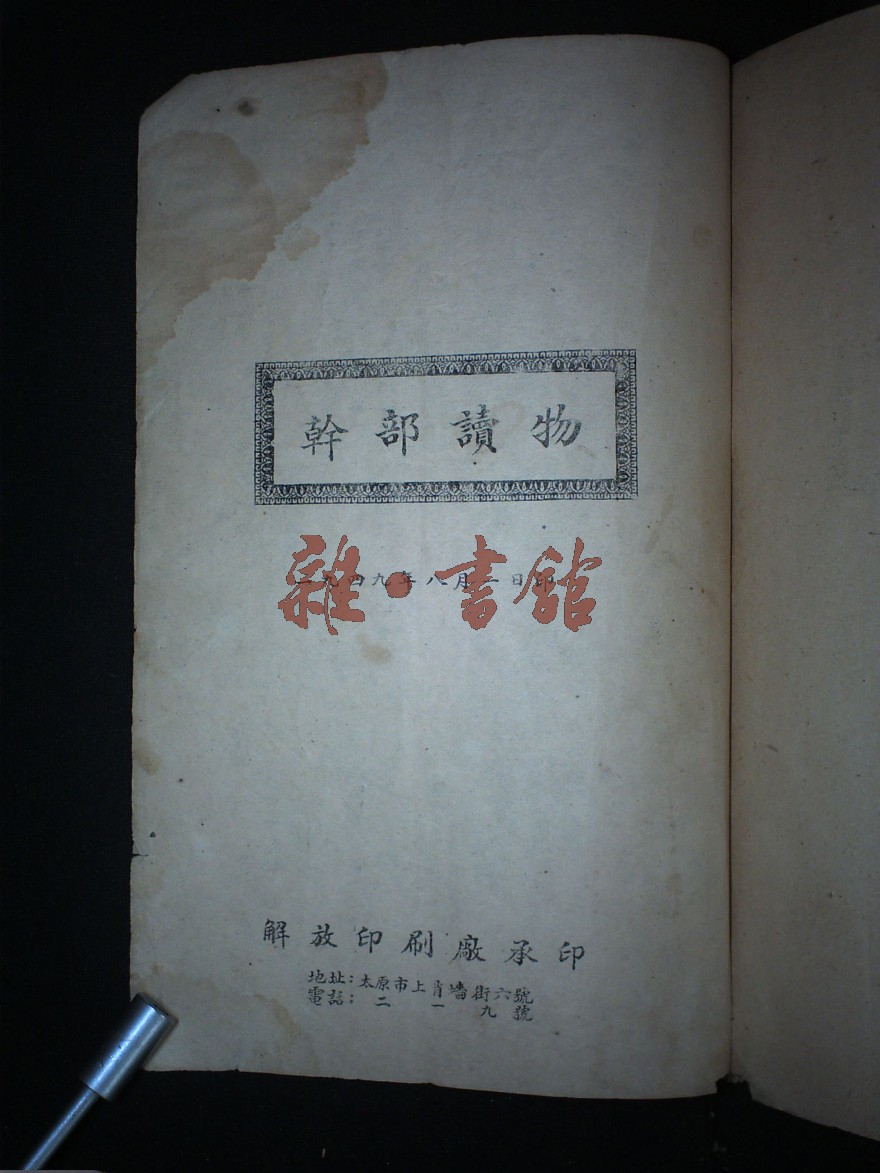 幹部讀物
一九四九年八月一日印
雜·書館
解放印刷廠承印
地址：太原市上肖墻街六號
電話：二一九號